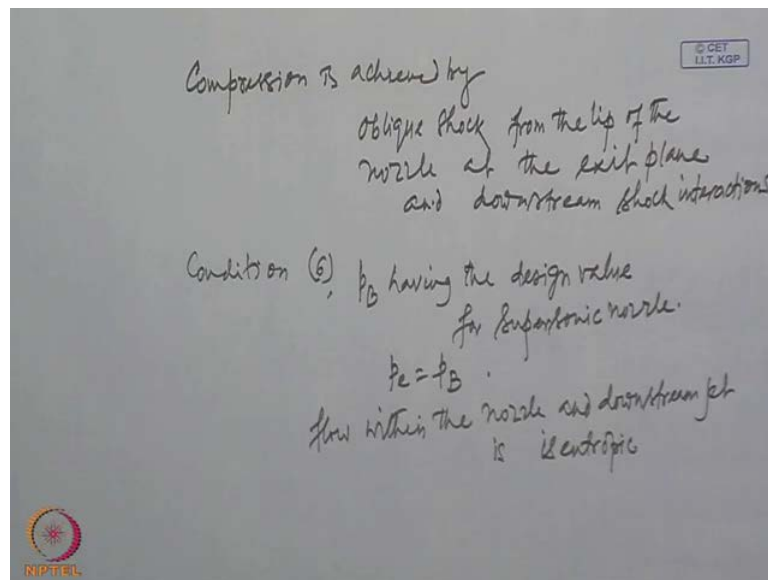 © CET
I.I.T. KGP
Compression is achieved by
oblique shock from the lip of the
nozzle at the exit plane
and downstream shock interactions
Condition (6), p_B having the design value
for supersonic nozzle.
p_e = p_B .
flow within the nozzle and downstream jet
is isentropic
NPTEL